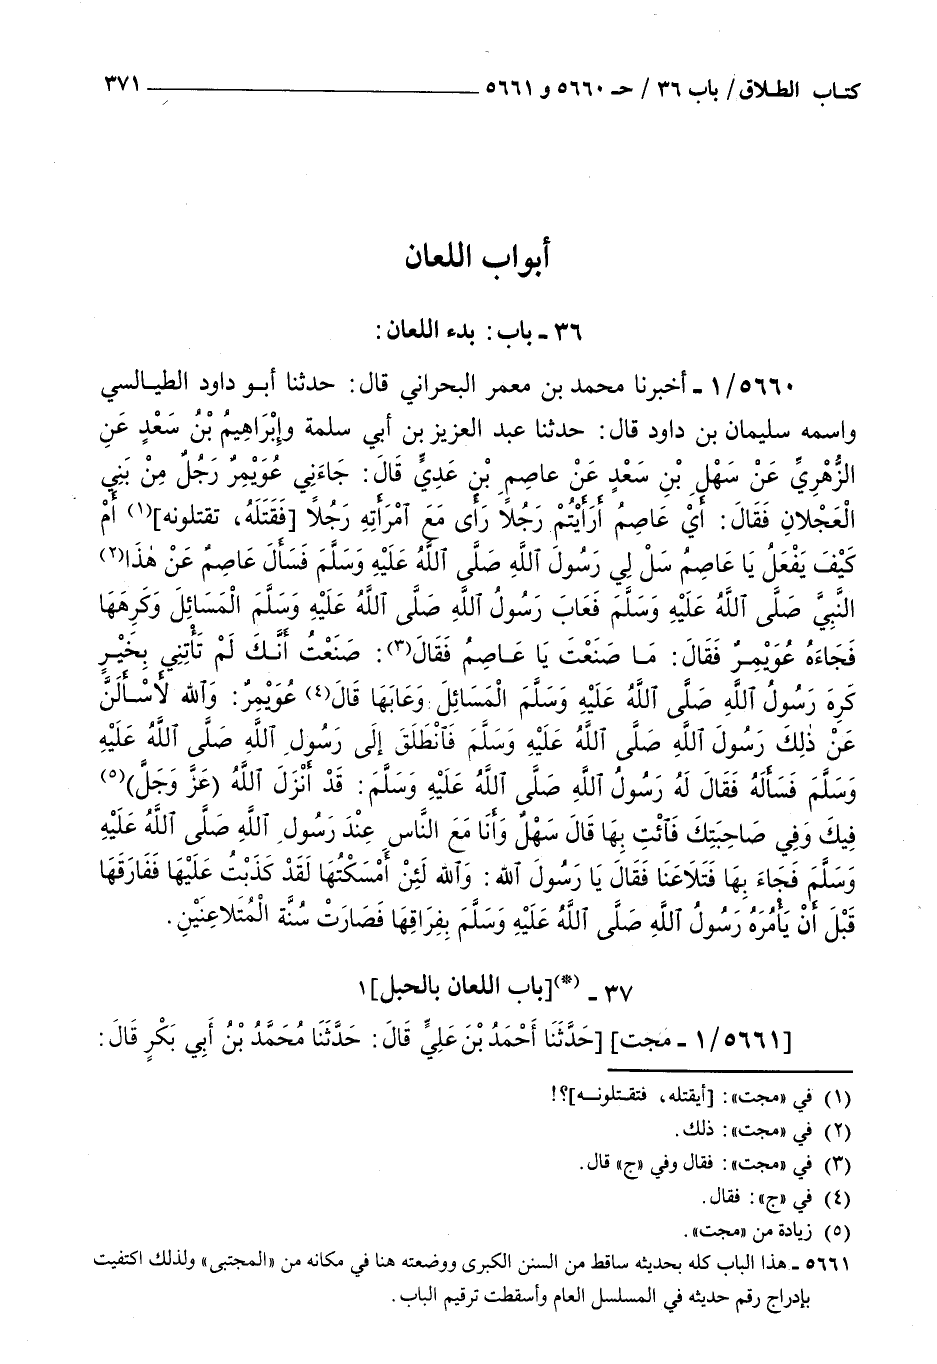 كتاب الطلاق/ باب ٣٦/ حـ ٥٦٦٠ و ٥٦٦١ ٣٧١
أبواب اللعان
٣٦ - باب: بدء اللعان:
١/٥٦٦٠ - أخبرنا محمد بن معمر البحراني قال: حدثنا أبو داود الطيالسي
واسمه سليمان بن داود قال: حدثنا عبد العزيز بن أبي سلمة وإِبْرَاهِيمُ بْنُ سَعْدٍ عَنِ
الزُّهْرِيِّ عَنْ سَهْلِ بْنِ سَعْدٍ عَنْ عاصِمِ بْنِ عَدِيٍّ قَالَ: جَاءَنِي عُوَيْمِرٌ رَجُلٌ مِنْ بَنِي
الْعَجْلانِ فَقَالَ: أَيْ عَاصِمُ أَرَأَيْتُمْ رَجُلًا رَأَى مَعَ ٱمْرَأَتِهِ رَجُلًا [فَقَتَلَهُ، تقتلونه](١) أَمْ
كَيْفَ يَفْعَلُ يَا عَاصِمُ سَلْ لِي رَسُولَ ٱللَّهِ صَلَّى ٱللَّهُ عَلَيْهِ وَسَلَّمَ فَسأَلَ عَاصِمٌ عَنْ هٰذَا(٢)
النَّبِيَّ صَلَّى ٱللَّهُ عَلَيْهِ وَسَلَّمَ فَعَابَ رَسُولُ ٱللَّهِ صَلَّى ٱللَّهُ عَلَيْهِ وَسَلَّمَ الْمَسَائِلَ وَكَرِهَهَا
فَجَاءَهُ عُوَيْمِرٌ فَقَالَ: مَا صَنَعْتَ يَا عَاصِمُ فَقَالَ(٣): صَنَعْتُ أَنَّكَ لَمْ تَأْتِنِي بِخَيْرٍ
كَرِهَ رَسُولُ ٱللَّهِ صَلَّى ٱللَّهُ عَلَيْهِ وَسَلَّمَ الْمَسَائِلَ وَعَابَهَا قَالَ(٤) عُوَيْمِرٌ: وَٱلله لَأَسْأَلَنَّ
عَنْ ذٰلِكَ رَسُولَ ٱللَّهِ صَلَّى ٱللَّهُ عَلَيْهِ وَسَلَّمَ فَٱنْطَلَقَ إِلَى رَسُولِ ٱللَّهِ صَلَّى ٱللَّهُ عَلَيْهِ
وَسَلَّمَ فَسَأَلَهُ فَقَالَ لَهُ رَسُولُ ٱللَّهِ صَلَّى ٱللَّهُ عَلَيْهِ وَسَلَّمَ: قَدْ أَنْزَلَ ٱللَّهُ (عَزَّ وَجَلَّ)(٥)
فِيكَ وَفِي صَاحِبَتِكَ فَٱئْتِ بِهَا قَالَ سَهْلٌ وَأَنَا مَعَ النَّاسِ عِنْدَ رَسُولِ ٱللَّهِ صَلَّى ٱللَّهُ عَلَيْهِ
وَسَلَّمَ فَجَاءَ بِهَا فَتَلاَعَنَا فَقَالَ يَا رَسُولَ ٱلله: وَٱلله لَئِنْ أَمْسَكْتُهَا لَقَدْ كَذَبْتُ عَلَيْهَا فَفَارَقَهَا
قَبْلَ أَنْ يَأْمُرَهُ رَسُولُ ٱللَّهِ صَلَّى ٱللَّهُ عَلَيْهِ وَسَلَّمَ بِفِرَاقِهَا فَصَارَتْ سُنَّةَ الْمُتَلاَعِنَيْنِ.
٣٧ - (*)[باب اللعان بالحبل] ١
[١/٥٦٦١ - مجت] [حَدَّثَنَا أَحْمَدُ بْنُ عَلِيٍّ قَالَ: حَدَّثَنَا مُحَمَّدُ بْنُ أَبِي بَكْرٍ قَالَ:
(١) في «مجت»: [أيقتله، فتقتلونه]؟!
(٢) في «مجت»: ذلك.
(٣) في «مجت»: فقال وفي «ج» قال.
(٤) في «ج»: فقال.
(٥) زيادة من «مجت».
٥٦٦١ - هذا الباب كله بحديثه ساقط من السنن الكبرى ووضعته هنا في مكانه من «المجتبى» ولذلك اكتفيت
بإدراج رقم حديثه في المسلسل العام وأسقطت ترقيم الباب.